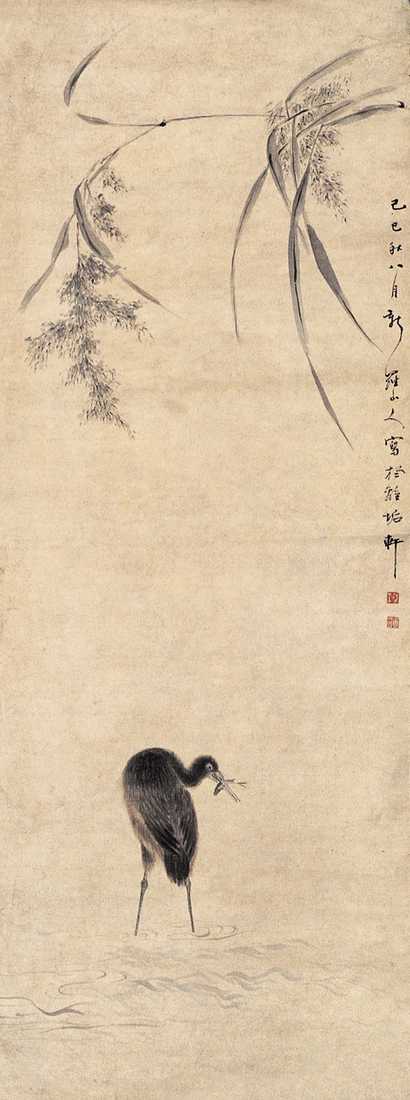 己巳秋八月新羅山人寫於離垢軒